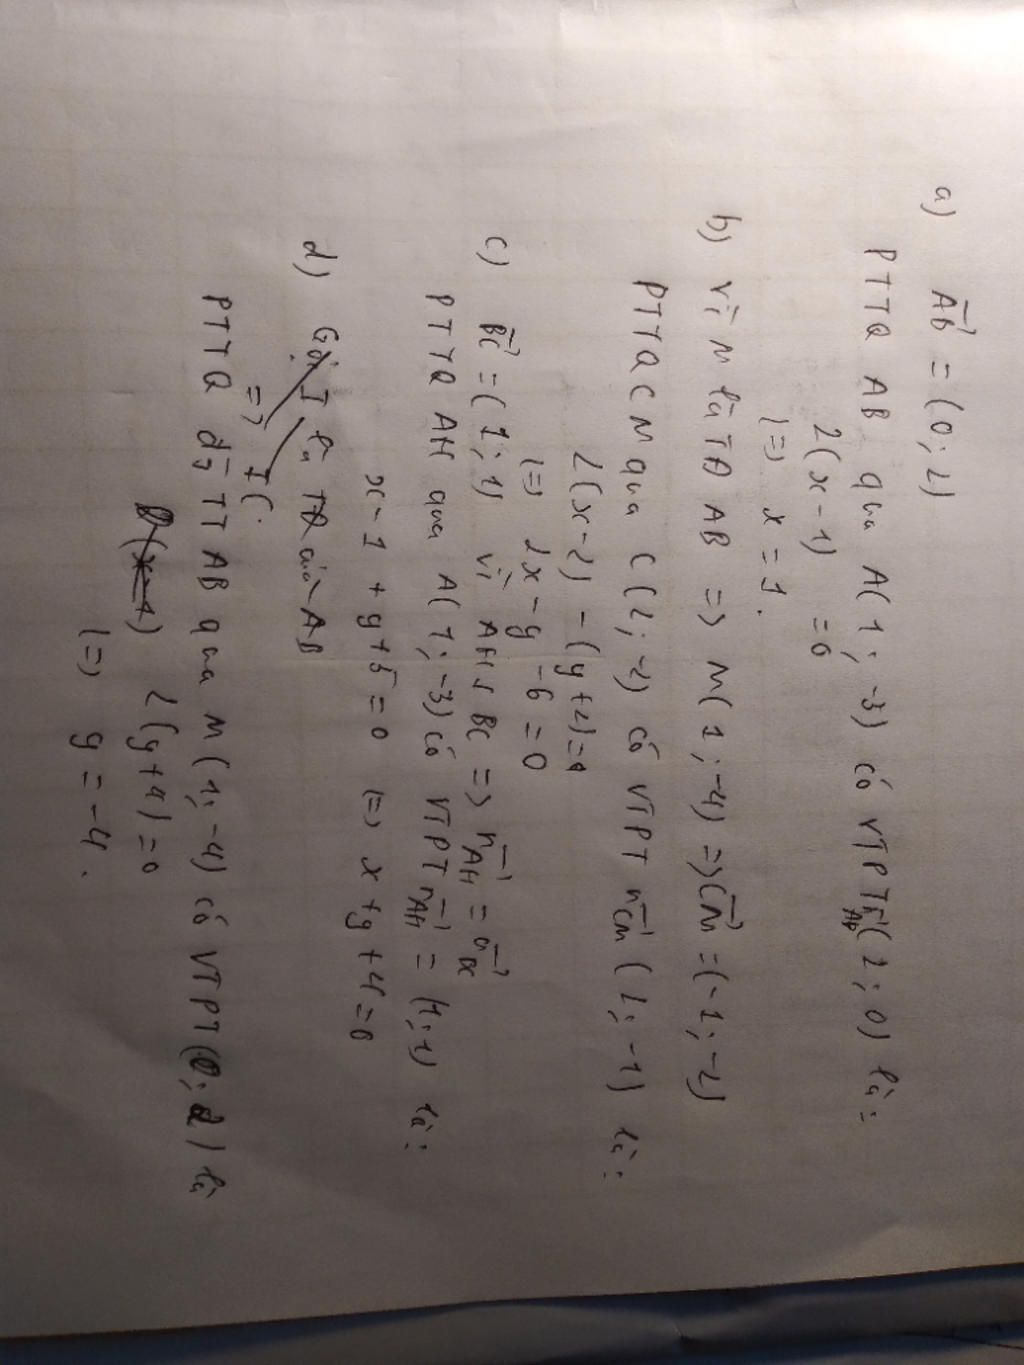 a) AB = (0; 2)
PTTQ AB qua A(1; -3) có VTPT n AB (2; 0) là:
2(x - 1) = 0
(=) x = 1.
b) Vì M là TĐ AB => M(1; -4) => CM = (-1; -2)
PTTQ CM qua C(2; -2) có VTPT n CM (2; -1) là:
2(x - 2) - (y + 2) = 0
(=) 2x - y - 6 = 0
c) BC = (1; 1) Vì AH ⊥ BC => n AH = u BC
PTTQ AH qua A(1; -3) có VTPT n AH = (1; 1) là:
x - 1 + y + 5 = 0 (=) x + y + 4 = 0
d) Gọi I là TĐ của AB
=> I(.
PTTQ đg TT AB qua M(1; -4) có VTPT (0; 2) là
0(x-1) 2(y + 4) = 0
(=) y = -4.